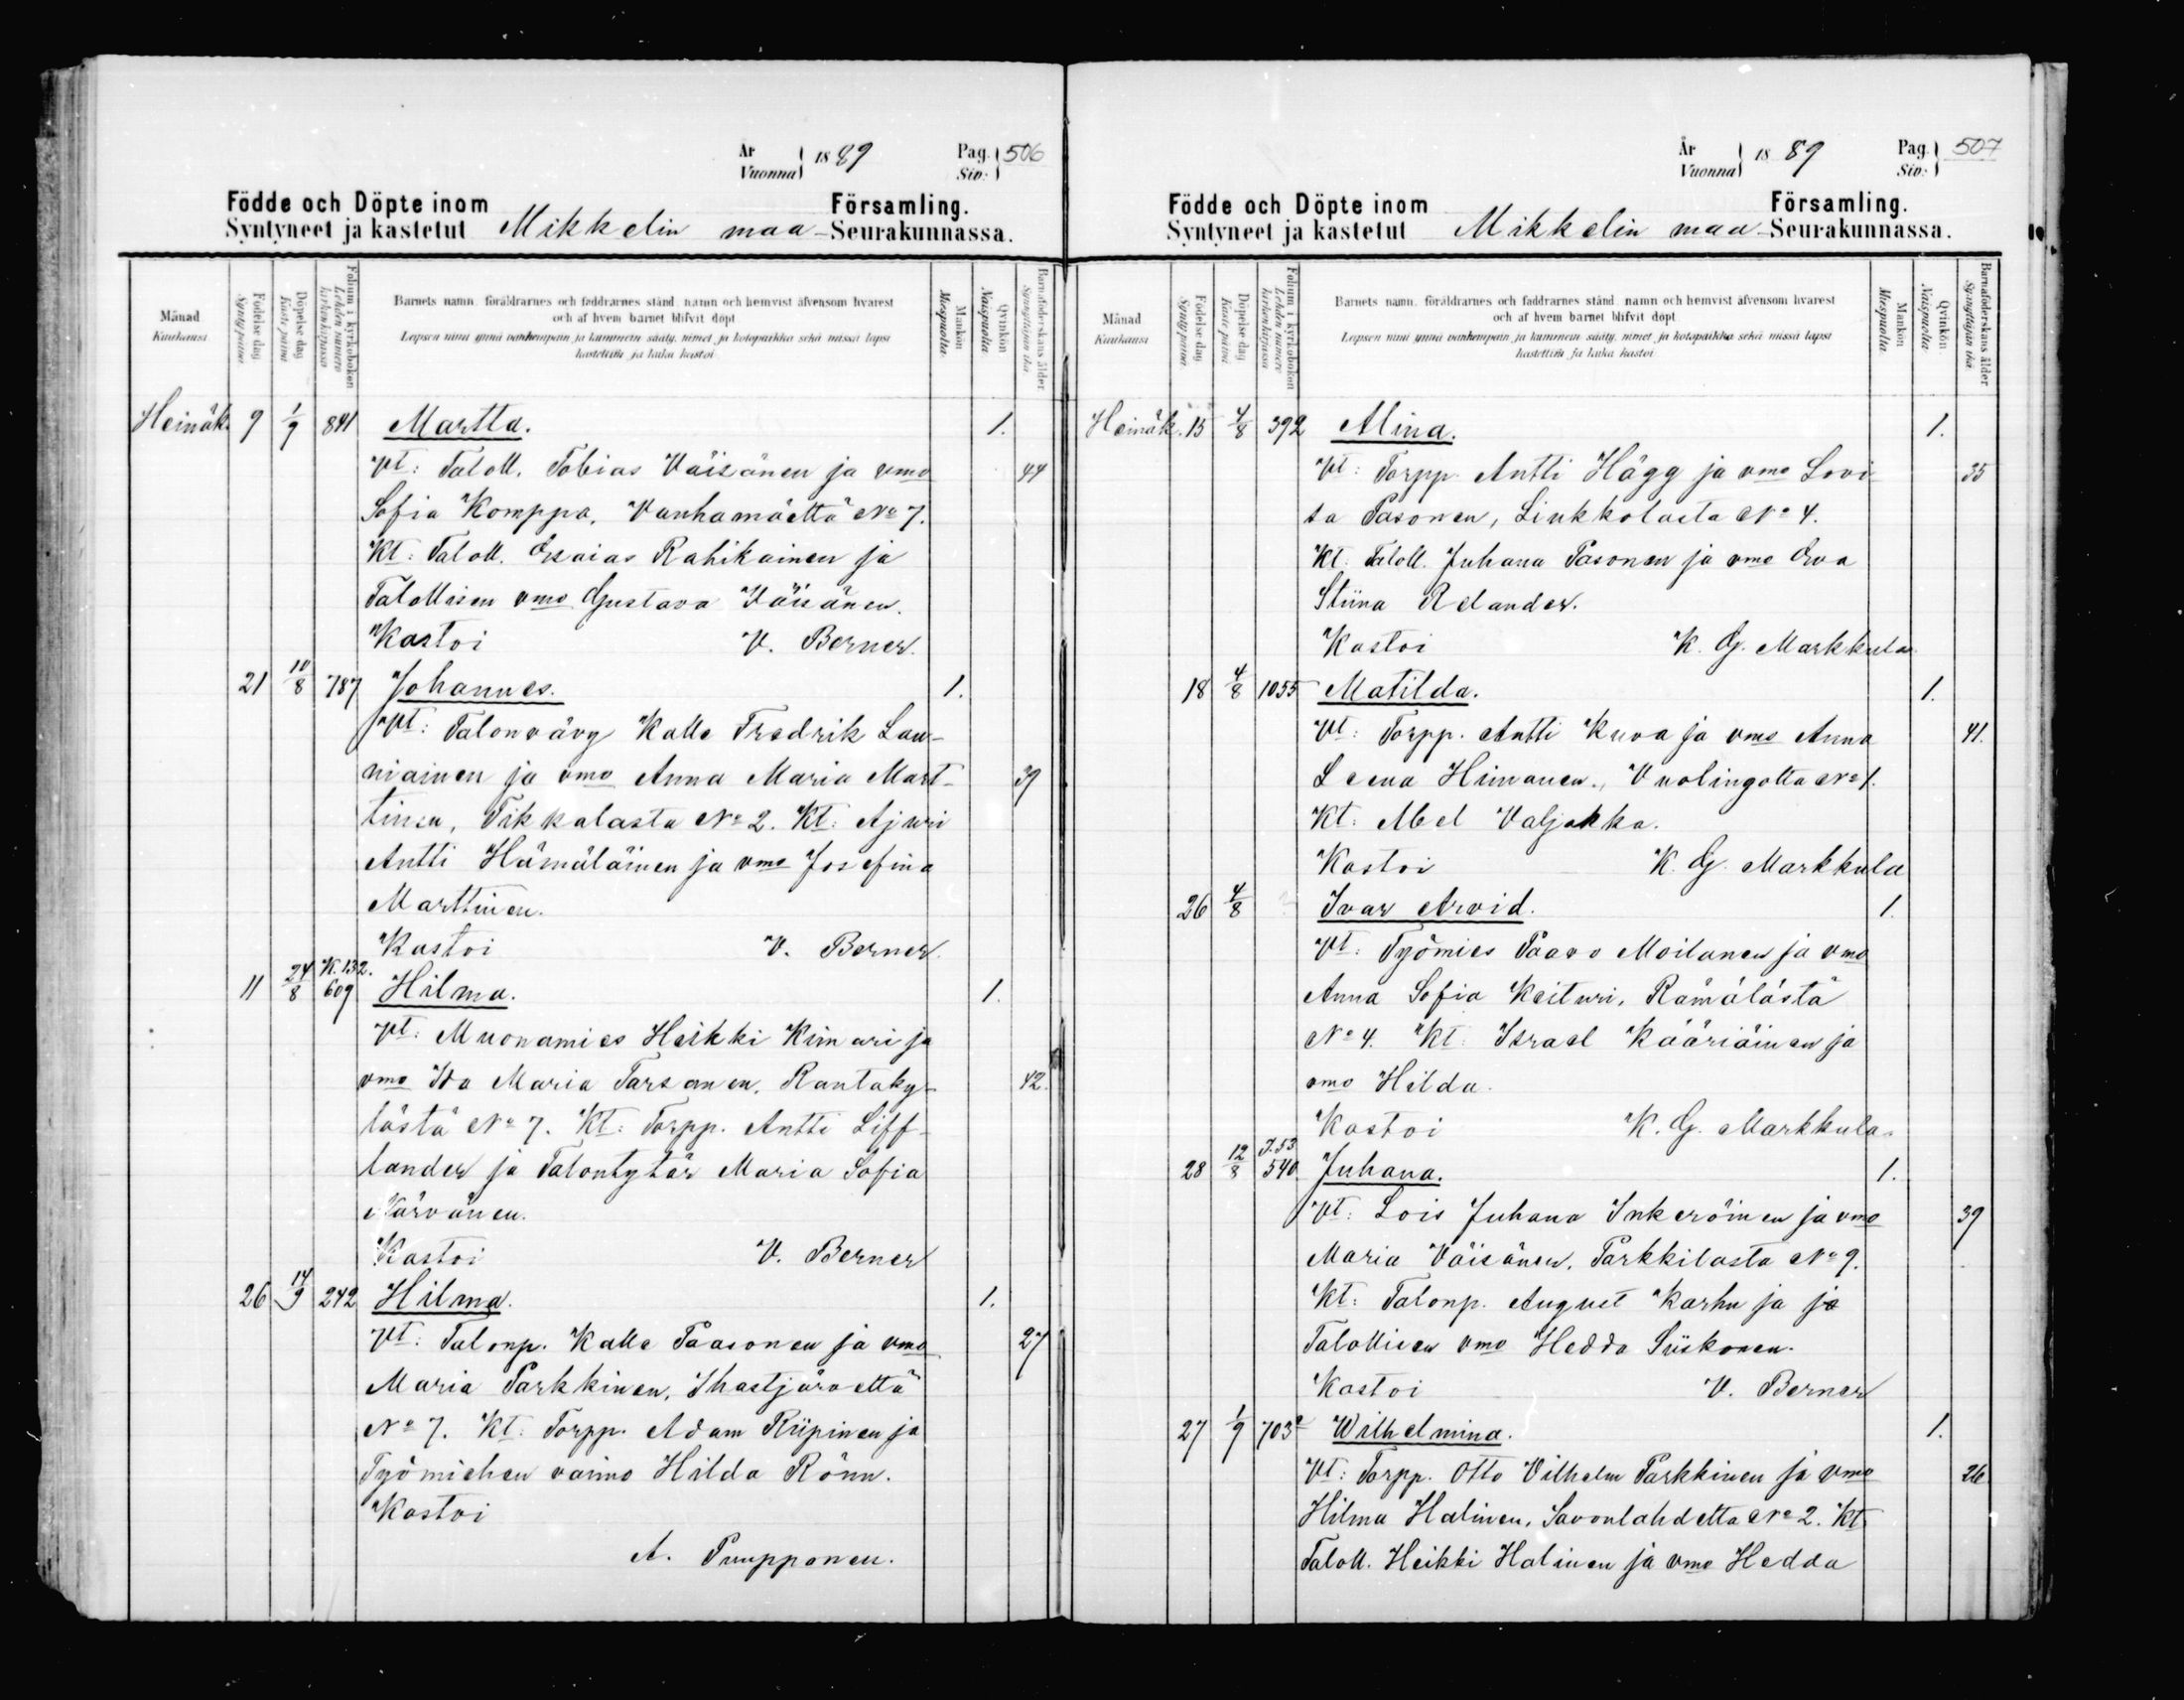 År
Vuonna 1889 Pag. Siv: 506
Födde och Döpte inom Församling.
Syntyneet ja kastetut Mikkelin maa-Seurakunnassa.
Månad
Kuukausi
Födelse dag
Synty päivä
Döpelse dag
Kaste päivä
Folium i kyrkoboken
Lehden numero kirkonkirjassa
Barnets namn, föräldrarnes och faddrarnes stånd, namn och hemvist äfvensom hvarest
och af hvem barnet blifvit döpt
Lapsen nimi ynnä vanhempain ja kummein sääty, nimet ja kotopaikka sekä missä lapsi
kastettiin ja kuka kastoi
Mankön
Miespuolia
Qvinkön
Naispuolia
Barnaföderskans ålder
Synnyttäjän ikä
Heinäk. 9 1/9 841 Martta. 1.
Vt: Taloll. Tobias Väisänen ja vmo 44
Sofia Komppa, Vanhamäeltä No 7.
Kt: Taloll. Esaias Rahikainen ja
Talollisen vmo Gustava Väisänen.
Kastoi V. Berner.
21 10/8 787 Johannes. 1.
Vt: Talonvävy Kalle Fredrik Lau-
niainen ja vmo Anna Maria Mart- 39
tinen, Tikkalasta No 2. Kt: Ajuri
Antti Hämäläinen ja vmo Josefina
Marttinen.
Kastoi V. Berner.
11 24/8 K. 132. 609 Hilma. 1.
Vt: Muonamies Heikki Kimari ja
vmo Ida Maria Tarsanen, Rantaky- 42.
lästä No 7. Kt: Torpp. Antti Liff-
lander ja Talontytär Maria Sofia
Närvänen.
Kastoi V. Berner
26 14/9 242 Hilma. 1.
Vt: Talonp. Kalle Paasonen ja vmo 27
Maria Parkkinen, Ihastjärveltä
No 7. Kt: Torpp. Adam Riipinen ja
Työmiehen vaimo Hilda Rönn.
Kastoi
A. Puupponen.
År
Vuonna 1889 Pag. Siv: 507
Födde och Döpte inom Församling.
Syntyneet ja kastetut Mikkelin maa-Seurakunnassa.
Månad
Kuukausi
Födelse dag
Synty päivä
Döpelse dag
Kaste päivä
Folium i kyrkoboken
Lehden numero kirkonkirjassa
Barnets namn, föräldrarnes och faddrarnes stånd, namn och hemvist äfvensom hvarest
och af hvem barnet blifvit döpt
Lapsen nimi ynnä vanhempain ja kummein sääty, nimet ja kotopaikka sekä missä lapsi
kastettiin ja kuka kastoi
Mankön
Miespuolia
Qvinkön
Naispuolia
Barnaföderskans ålder
Synnyttäjän ikä
Heinäk. 15 4/8 392 Alina. 1.
Vt: Torpp. Antti Hägg ja vmo Lovi- 35
sa Pasonen, Liukkolasta No 4.
Kt: Taloll. Juhana Pasonen ja vmo Eva
Stiina Relander.
Kastoi K. G. Markkula
18 4/8 1055 Matilda. 1.
Vt: Torpp. Antti Kuva ja vmo Anna 41.
Leena Himanen, Vuolingolta No 1.
Kt: Abel Valjakka.
Kastoi K. G. Markkula
26 4/8 Ivar Arvid. 1.
Vt: Työmies Paavo Moilanen ja vmo
Anna Sofia Keituri, Rämälästä
No 4. Kt: Israel Kääriäinen ja
vmo Hilda.
Kastoi K. G. Markkula.
28 12/8 I. 53 540 Juhana. 1.
Vt: Lois Juhana Inkeröinen ja vmo 39
Maria Väisänen, Parkkilasta No 9.
Kt: Talonp. August Karhu ja ja
Talollisen vmo Hedda Siiskonen.
Kastoi V. Berner
27 1/9 703 Wilhelmina. 1.
Vt: Torpp. Otto Vilhelm Parkkinen ja vmo 26
Hilma Halinen, Savonlahdelta No 2. Kt:
Taloll. Heikki Halinen ja vmo Hedda